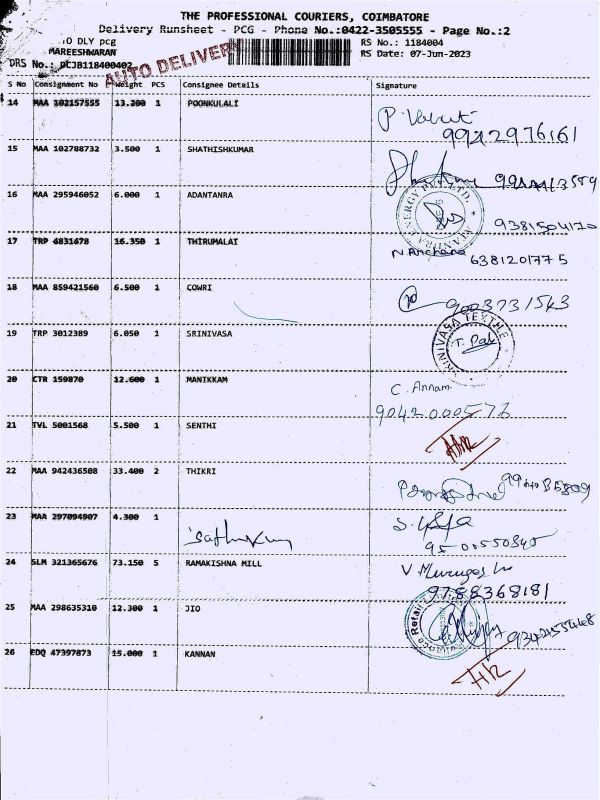 THE PROFESSIONAL COURIERS, COIMBATORE
Delivery Runsheet - PCG - Phone No.:0422-3505555 - Page No.:2
TO DLY pcg
MAREESHWARAN
RS No.: 1184004
DRS No.: PCJB118400402
RS Date: 07-Jun-2023
AUTO DELIVERY
S No Consignment No Weight PCS Consignee Details Signature
14 MAA 102157555 13.200 1 POONKULALI
9942976161
15 MAA 102788732 3.500 1 SHATHISHKUMAR
16 MAA 295946052 6.000 1 ADANTRA
ENERGY PVT LTD
9381504170
17 TRP 4831478 16.350 1 THIRUMALAI N Archana
6381201775
18 MAA 859421560 6.500 1 COWRI
9003731543
19 TRP 3012389 6.050 1 SRINIVASA
SRINIVASA TEXTILE
20 CTR 159870 12.600 1 MANIKKAM C. Annam
21 TVL 5001568 5.500 1 SENTHI
22 MAA 942436508 33.400 2 THIKRI
23 MAA 297094907 4.300 1
9500550845
24 SLM 321365676 73.150 5 RAMAKISHNA MILL
9788368181
25 MAA 298635310 12.300 1 JIO
Retail
26 EDQ 47397873 15.000 1 KANNAN